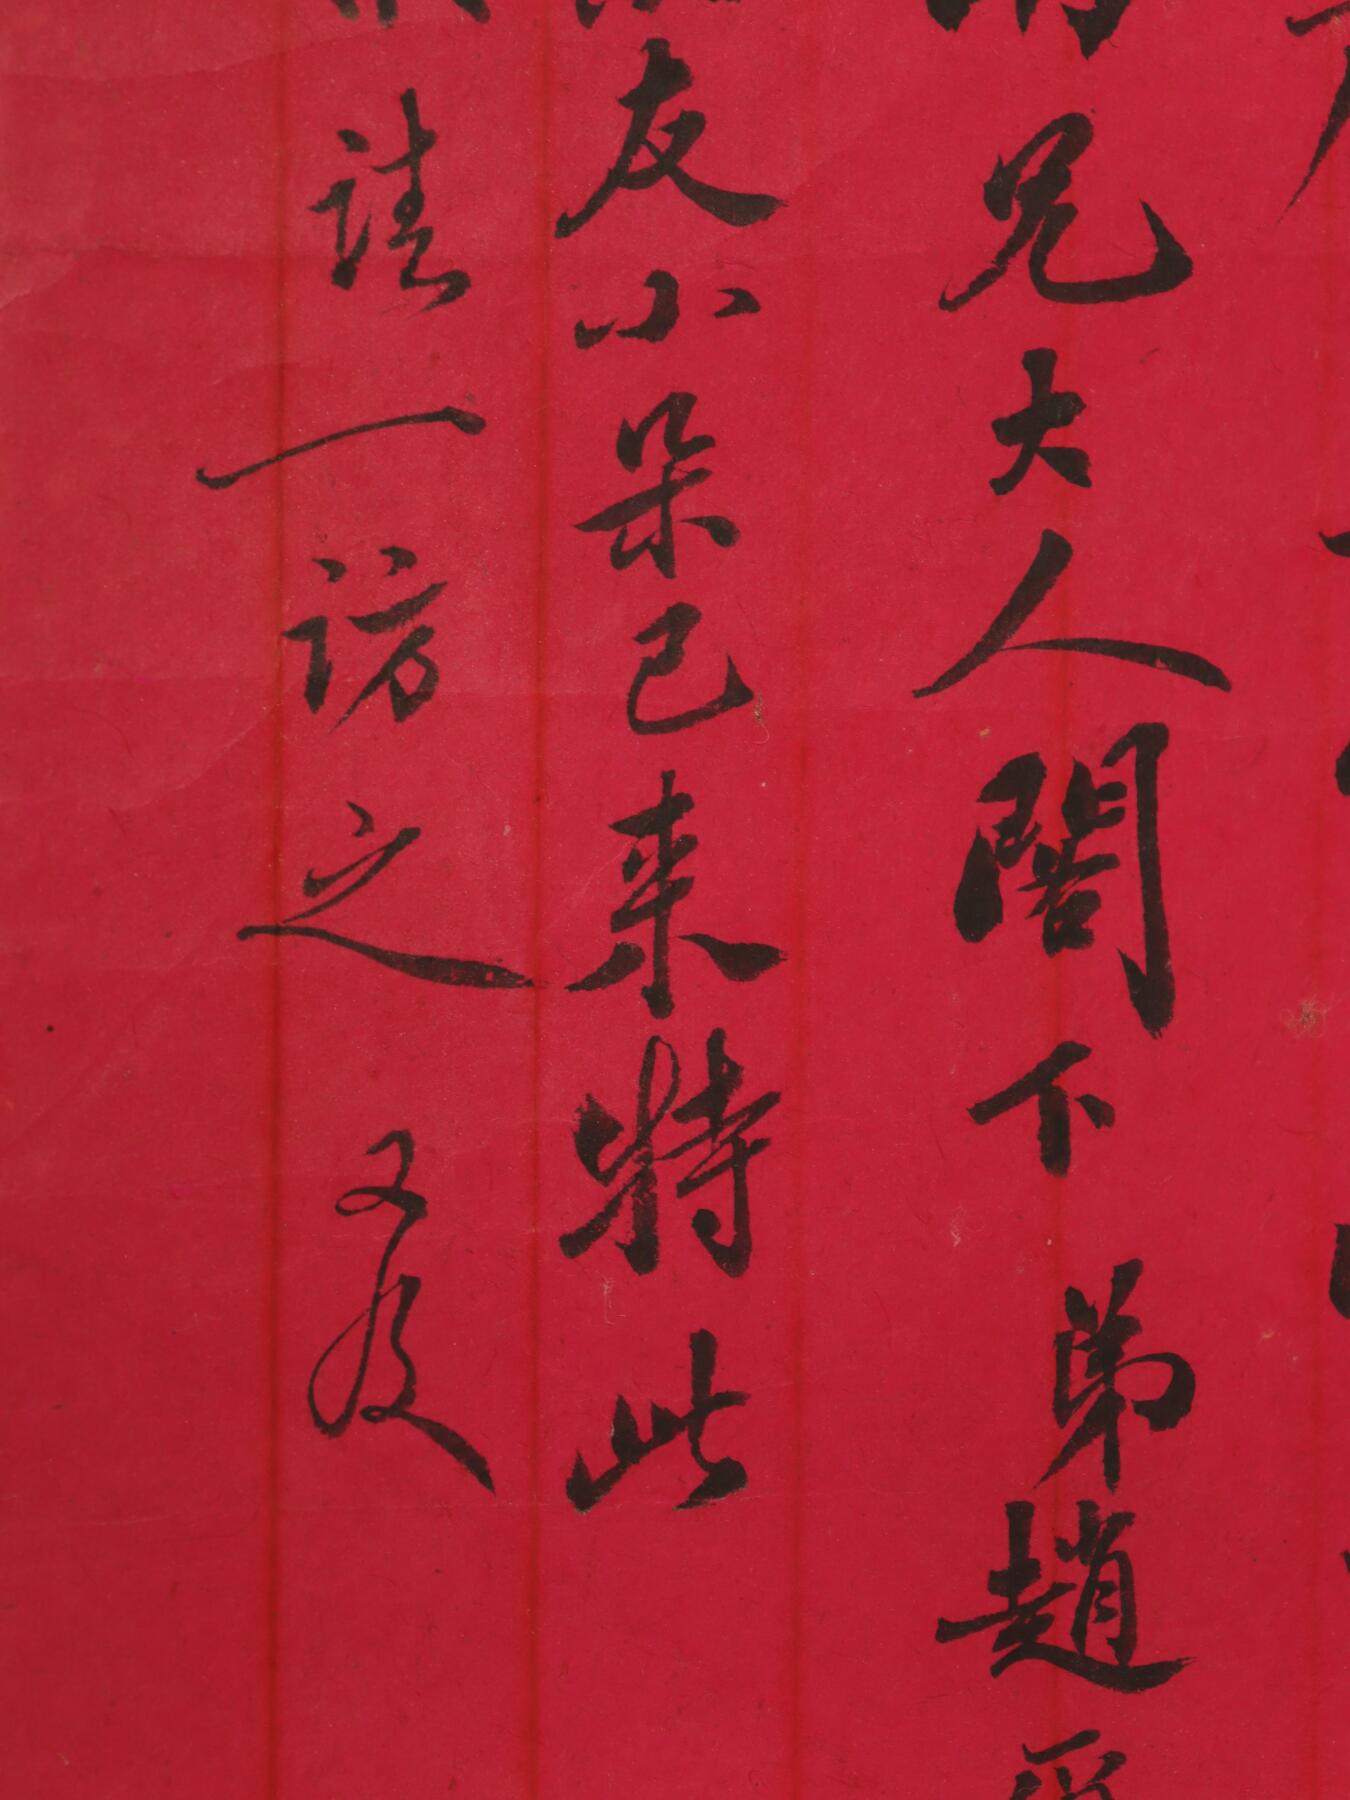 兄大人閣下 弟趙
友小朵已来特此
請一訪之 又及